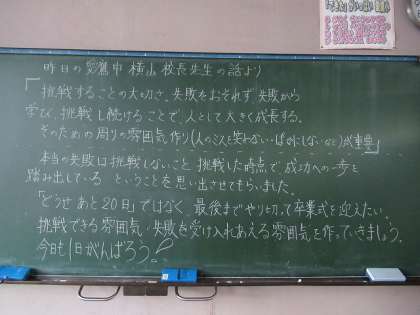 昨日の愛鷹中 横山校長先生の話より
「挑戦することの大切さ、失敗をおそれず、失敗から
学び、挑戦し続けることで、人として大きく成長する。
そのための周りの雰囲気作り(人のミスを笑わない・ばかにしないなど)が重要」
本当の失敗は挑戦しないこと 挑戦した時点で成功への一歩を
踏み出している ということを思い出させてもらいました。
「どうせあと20日」ではなく、最後までやり切って卒業式を迎えたい。
挑戦できる雰囲気・失敗を受け入れあえる雰囲気を作っていきましょう。
今日も1日がんばろう!